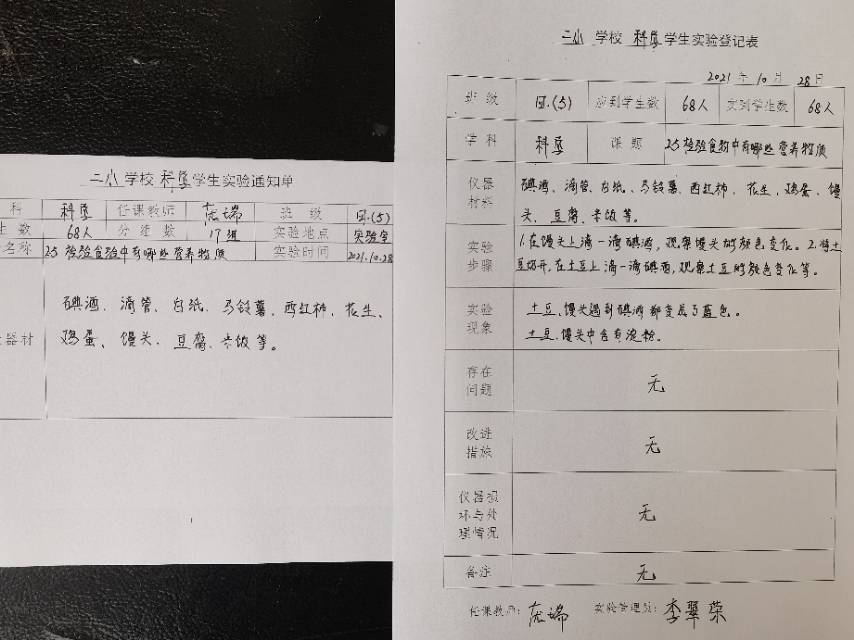 二小 学校 科学 学生实验通知单
科 科学 任课教师 庞瑞 班级 四.(5)
生数 68人 分组数 17组 实验地点 实验室
名称 2.5 检验食物中有哪些营养物质 实验时间 2021.10.28
器材 碘酒、滴管、白纸、马铃薯、西红柿、花生、
鸡蛋、馒头、豆腐、米饭等。
二小 学校 科学 学生实验登记表
2021 年 10 月 28 日
班级 四.(5) 应到学生数 68人 实到学生数 68人
学科 科学 课题 2.5 检验食物中有哪些营养物质
仪器材料 碘酒、滴管、白纸、马铃薯、西红柿、花生、鸡蛋、馒
头、豆腐、米饭等。
实验步骤 1.在馒头上滴一滴碘酒,观察馒头的颜色变化。2.将土
豆切开,在土豆上滴一滴碘酒,观察土豆的颜色变化等。
实验现象 土豆、馒头遇到碘酒都变成了蓝色。
土豆、馒头中含有淀粉。
存在问题 无
改进措施 无
仪器损坏与处理情况 无
备注 无
任课教师: 庞瑞 实验管理员: 李翠荣